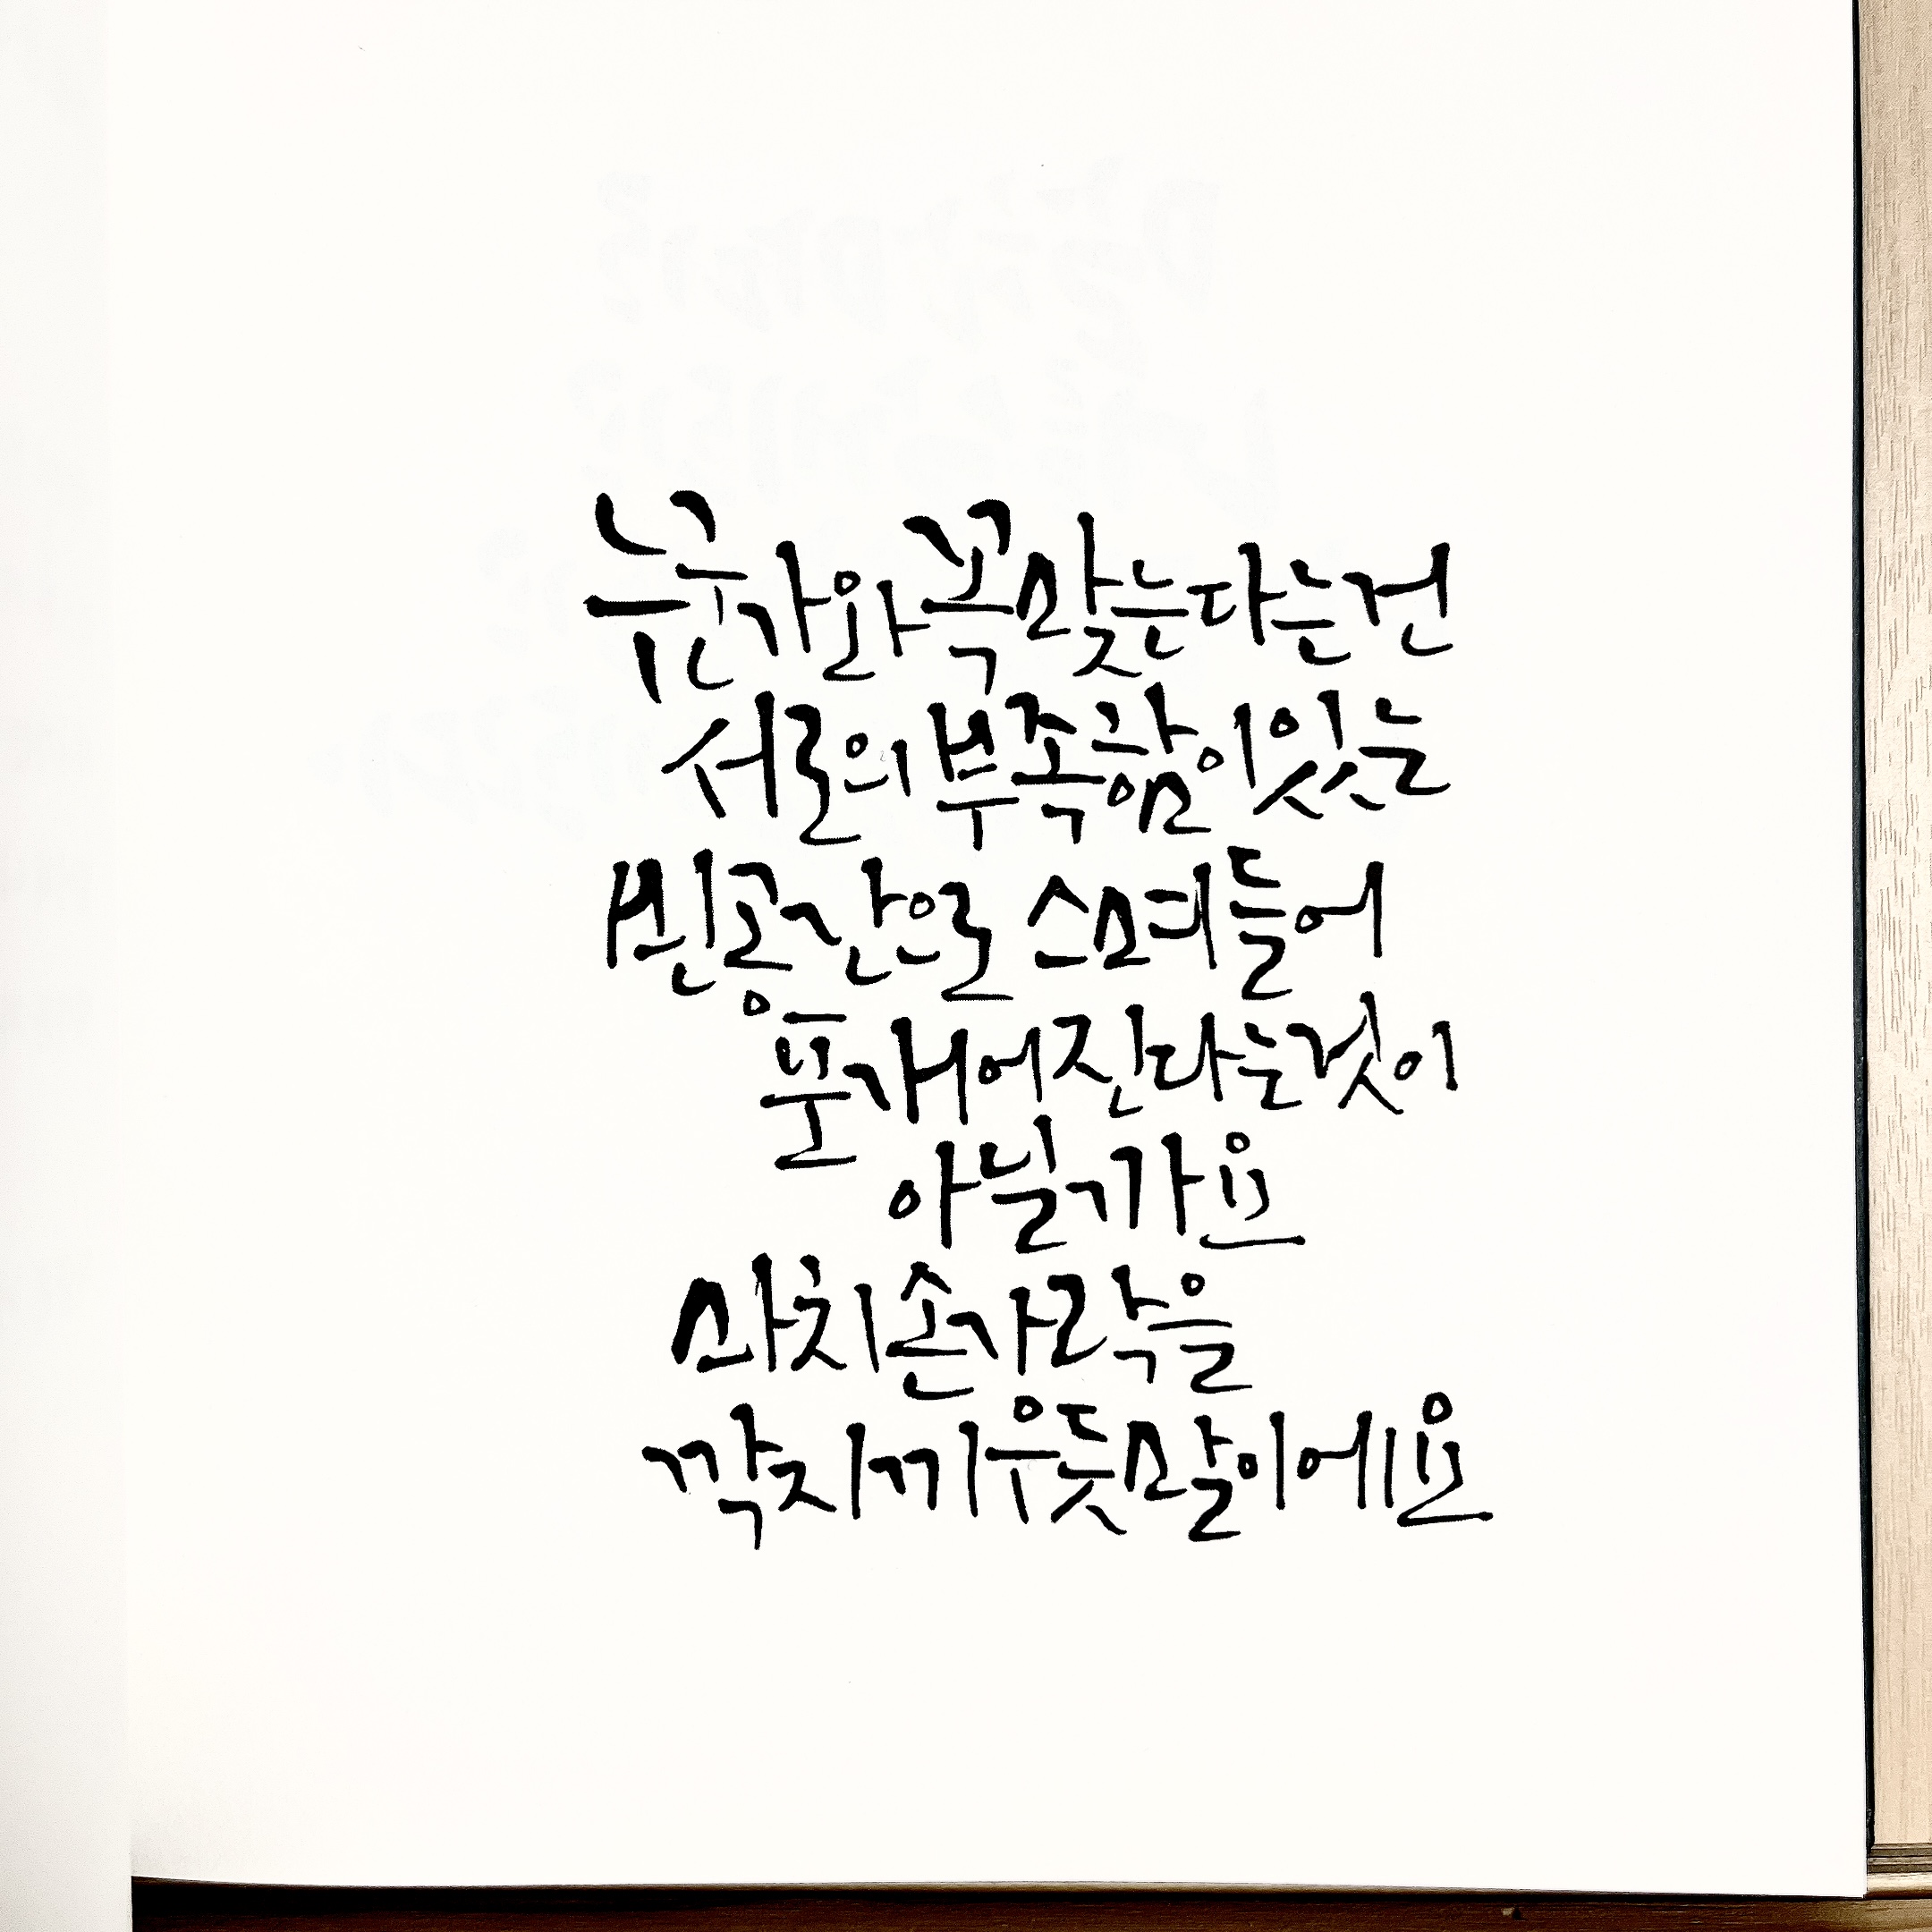 누군가와 꼭 맞는다는 건
서로의 부족함이 있는
빈 공간으로 스며들어
포개어진다는 것이
아닐까요
마치 손가락을
깍지 끼우듯 말이에요